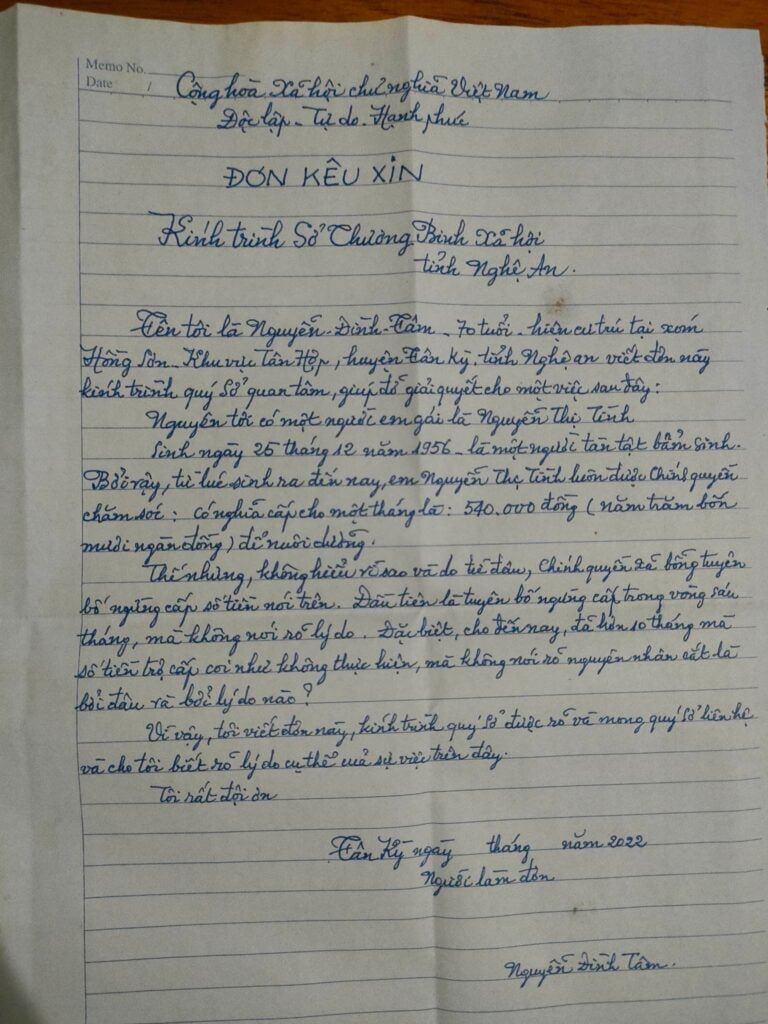 Memo No.
Date /
Cộng hoà Xã hội chủ nghĩa Việt Nam
Độc lập - Tự do - Hạnh phúc
ĐƠN KÊU XIN
Kính trình Sở Thương Binh Xã hội
tỉnh Nghệ An.
Tên tôi là Nguyễn-Đình-Tâm - 70 tuổi - hiện cư trú tại xóm
Hồng Sơn - Khu vực Tân Hợp, huyện Tân Kỳ, tỉnh Nghệ an viết đơn này
kính trình quý Sở quan tâm, giúp đỡ giải quyết cho một việc sau đây:
Nguyên tôi có một người em gái là Nguyễn Thị Tình
Sinh ngày 25 tháng 12 năm 1956 - là một người tàn tật bẩm sinh.
Bởi vậy, từ lúc sinh ra đến nay, em Nguyễn Thị Tình luôn được Chính quyền
chăm sóc: có nghĩa cấp cho một tháng là: 540.000 đồng (năm trăm bốn
mươi ngàn đồng) để nuôi dưỡng.
Thế nhưng, không hiểu vì sao và do từ đâu, Chính quyền xã bỗng tuyên
bố ngừng cấp số tiền nói trên. Đầu tiên là tuyên bố ngừng cấp trong vòng sáu
tháng, mà không nói rõ lý do. Đặc biệt, cho đến nay, đã hơn 10 tháng mà
số tiền trợ cấp coi như không thực hiện, mà không nói rõ nguyên nhân cắt là
bởi đâu và bởi lý do nào?
Vì vậy, tôi viết đơn này, kính trình quý Sở được rõ và mong quý Sở liên hệ
và cho tôi biết rõ lý do cụ thể của sự việc trên đây.
Tôi rất đội ơn
Tân Kỳ ngày tháng năm 2022
Người làm đơn
Nguyễn Đình Tâm.